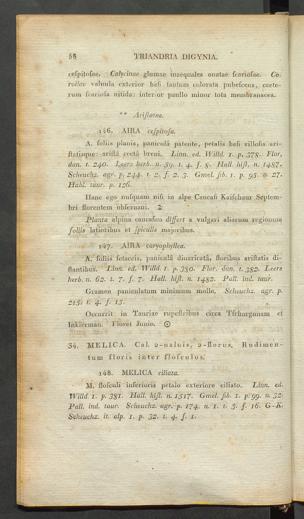 58 TRIANDRIA DIGYNIA.
cespitosae. Calycinae glumae inaequales ouatae scariosae. Co-
rollae valuula exterior basi tantum colorata pubescens, caete-
rum scariosa nitida: interior paullo minor tota membranacea.
** Aristatae.
146. AIRA cespitosa.
A. foliis planis, panicula patente, petalis basi villosis ari-
statisque: arista recta breui. Linn. ed. Willd. 1. p. 378. Flor.
dan. t. 240. Leers herb. n. 59. t. 4. f. 8. Hall. hist. n. 1487.
Scheuchz. agr. p. 244. t. 2. f. 2. 3. Gmel. sib. 1. p. 95. n. 27.
Habl. taur. p. 126.
Hanc ego nusquam nisi in alpe Caucasi Kaischaur Septem-
bri florentem obseruaui. ♃
Planta alpina caucasica differt a vulgari aliarum regionum
foliis latioribus et spiculis maioribus.
147. AIRA caryophyllea.
A. foliis setaceis, panicula diuaricata, floribus aristatis di-
stantibus. Linn. ed. Willd. 1. p. 380. Flor. dan. t. 382. Leers
herb. n. 62. t. 7. f. 7. Hall. hist. n. 1482. Pall. ind. taur.
Gramen paniculatum minimum molle. Scheuchz. agr. p.
215. t. 4. f. 15.
Occurrit in Tauriae rupestribus circa Tschorgunam et
Inkierman. Floret Junio. ☉
34. MELICA. Cal. 2-valuis, 2-florus. Rudimen-
tum floris inter flosculos.
148. MELICA ciliata.
M. flosculi inferioris petalo exteriore ciliato. Linn. ed.
Willd. 1. p. 381. Hall. hist. n. 1517. Gmel. sib. 1. p. 99. n. 32.
Pall. ind. taur. Scheuchz. agr. p. 174. n. 1. t. 3. f. 16. G-K.
Scheuchz. it. alp. 1. p. 32. t. 4. f. 1.